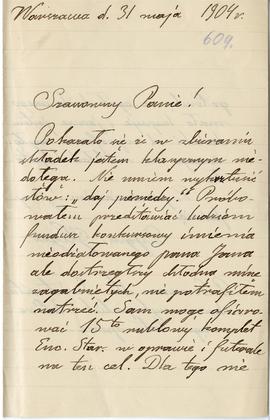 Warszawa d. 31 maja 1904 r.
609.
Szanowny Panie!
Pokazało się że w zbieraniu
składek jestem klasycznym nie-
dołęgą. Nie umiem wykrztusić
słów: „daj pieniędzy". Probo-
wałem przedstawiać ludziom
fundusz konkursowy imienia
nieodżałowanego pana Jana
ale dostrzegłszy chłodne miny
zagabniętych, nie potrafiłem
natrzeć. Sam mogę ofiaro-
wać 15to rublowy komplet
Enc. Star. w oprawie i futerale
na ten cel. Dla tego nie